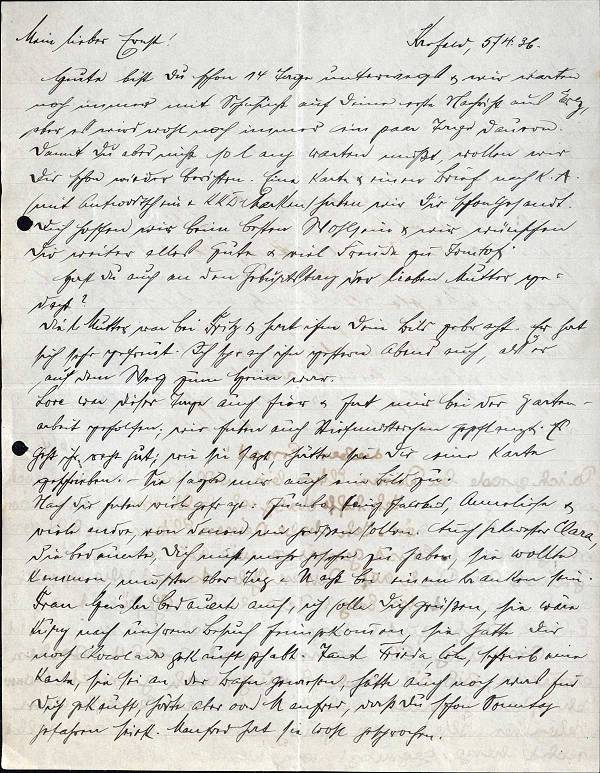 Mein lieber Ernst! Krefeld, 5/4.36.
Heute bist Du schon 14 Tage unterwegs & wir warten
noch immer mit Sehnsucht auf Deine erste Nachricht aus
aber es wird wohl noch immer ein paar Tage dauern.
Damit Du aber nicht so lang warten mußt, wollen wir
Dir schon wieder berichten. Eine Karte & einen Brief nach K. A.
(mit Antwortschein & ) haben wir Dir schon gesandt.
Dich hoffen wir beim besten Wohlsein & wir wünschen
Dir weiter alles Gute & viel Freude zum Festtag.
Hast Du auch an den Geburtstag der lieben Mutter ge-
dacht?
Die l. Mutter war bei Fritz & hat ihm Dein Bild gebracht. Er hat
sich sehr gefreut. Ich sprach ihn gestern Abend auch, als er
auf dem Weg zum Heim war.
Lore war dieser Tage auch hier & hat mir bei der Garten-
arbeit geholfen, wir haben auch Stiefmütterchen gepflanzt. Es
geht ihr recht gut; wie sie sagt hatte sie Dir eine Karte
geschrieben. - Sie sagte mir auch ein Bild zu.
Nach Dir haben viele gefragt. Jacobs, Anneliese &
viele andre, von denen wir grüßen sollen. Auch Schwester Clara,
die bedauerte, Dich nicht mehr gesehen zu haben, sie wollte
kommen, mußte aber Tag & Nacht bei einem Kranken sein.
Frau Geisler bedauerte auch, ich solle Dich grüßen, sie wäre
kurz nach unserem Besuch heimgekommen, sie hätte Dir
noch Chocolade gekauft gehabt. Tante Frieda, Cöln, schrieb eine
Karte, sie sei an der Bahn gewesen, hätte auch noch was für
Dich gekauft, hörte aber von Manfred, daß Du schon Sonntag
gefahren seist. Manfred hat sie wohl gesprochen.